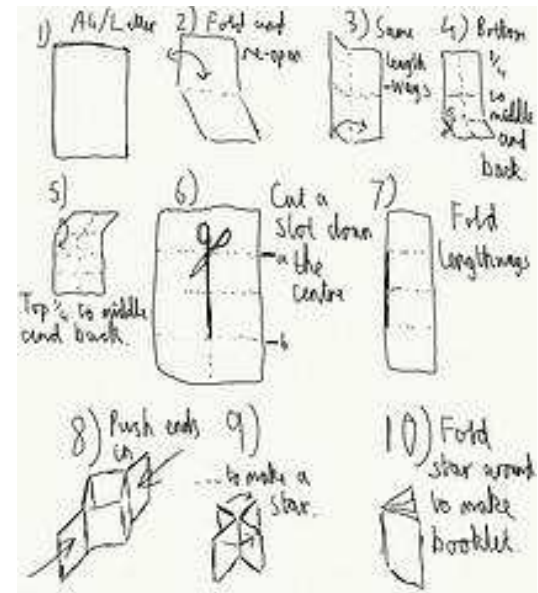 1) A4/Letter
2) Fold and
re-open
3) Same
length
-ways
4) Bottom
1/4
to
middle
and
back.
5)
Top 1/4 to middle
and back.
6)
Cut a
slot down
the
centre
a
b
7)
Fold
lengthways
8) Push ends
in
9)
....to make a
star.
10) Fold
star around
to make
booklet.